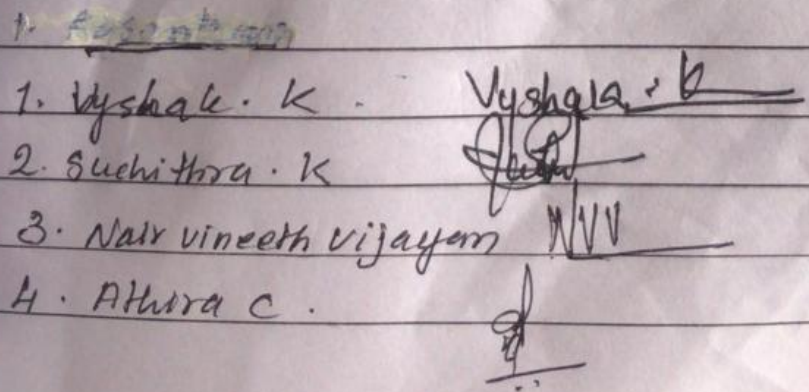 1.
1. Vyshak. K. Vyshak. K
2. Suchithra. K
3. Nair Vineeth Vijayan NVV
4. Athira C.